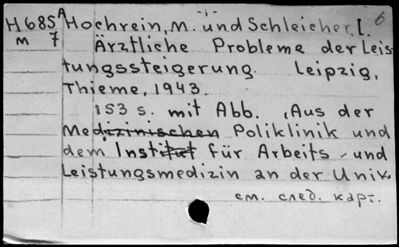 6
H685 A Hochrein, M. und Schleicher, I.
m 7 Ärztliche Probleme der Leis
tungssteigerung. Leipzig,
Thieme, 1943.
153 s. mit Abb. (Aus der
Medizinischen Poliklinik und
dem Institut für Arbeits- und
Leistungsmedizin an der Univ.
см. след. карт.